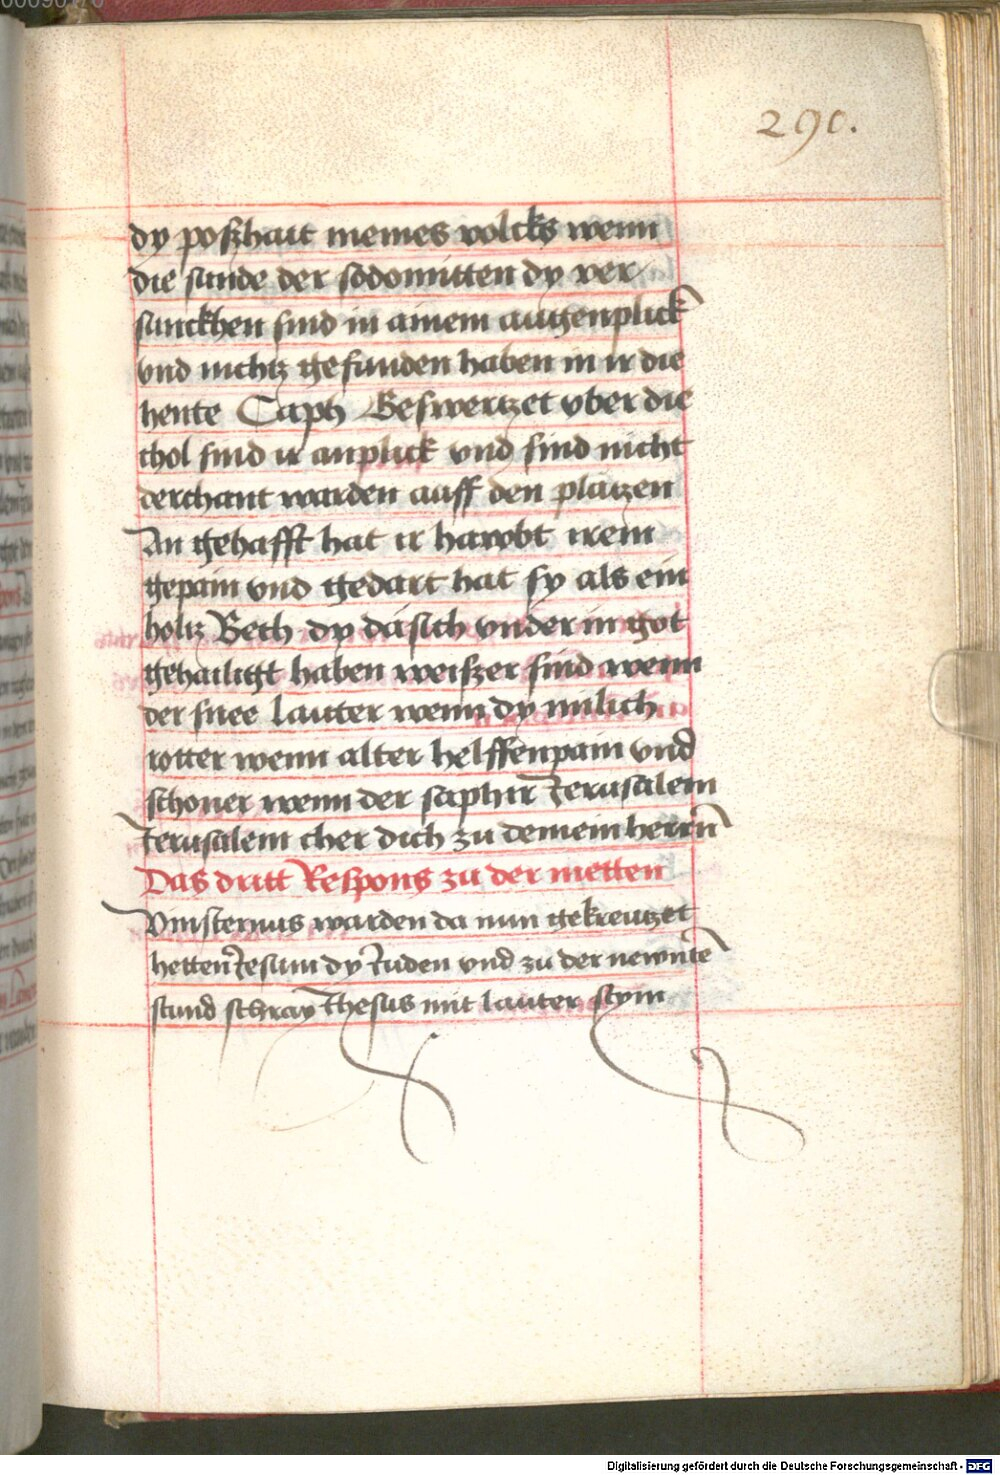 290.
dy poszhait meines volcks wenn
die sunde der sodomitten dy ver/
sunckhen sind in ainem augenplick
vnd nichtz gefunden haben in ir die
hente Caph Geswertzet vber die
chol sind ir anplick vnd sind nicht
derchant warden auff den pläczen
An gehafft hat ir hawbt irem
gepain vnd gedart hat sy als ein
holtz Beth dy da sich vnder in got
gehailigt haben weiszer sind wenn
der snee lauter wenn dy milich
rotter wenn alter helffenpain vnd
schoner wenn der saphir Jerusalem
Jerusalem cher dich zu deinem herrn
Das dritt Respons zu der metten
Vinsternus warden da nun gekreutzet
hetten Jesum dy Juden vnd zu der newnte
stund schray Jhesus mit lauter stym
Digitalisierung gefördert durch die Deutsche Forschungsgemeinschaft - DFG